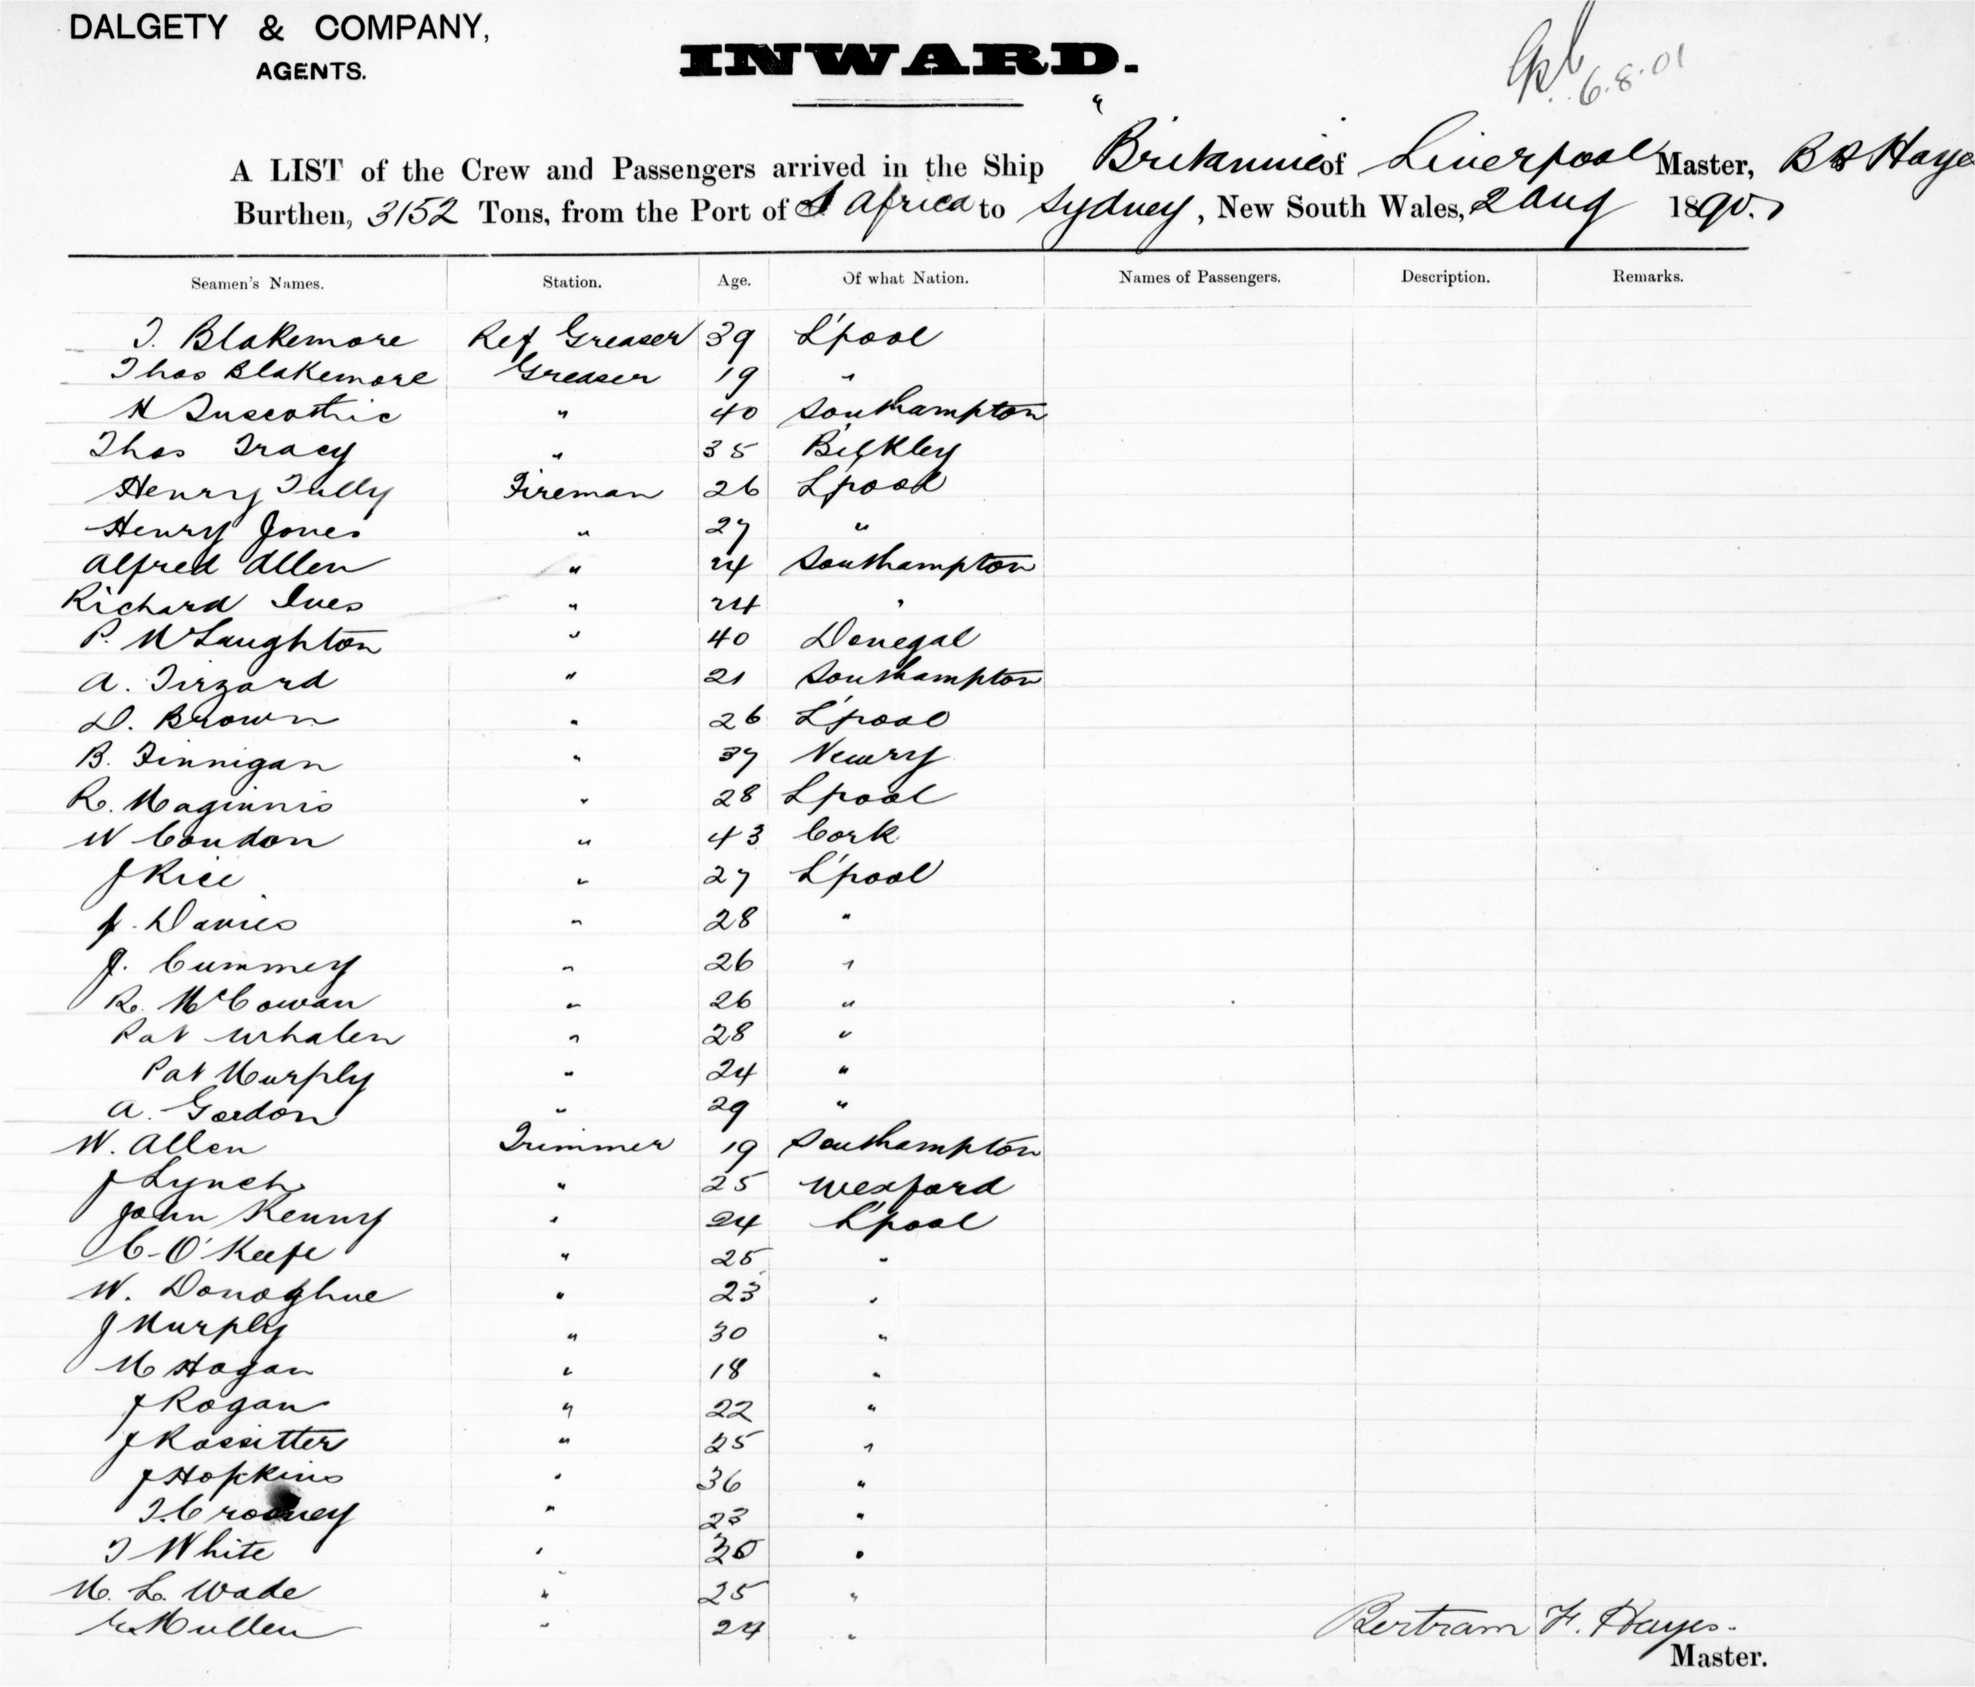 DALGETY & COMPANY,
AGENTS.
INWARD.
6.8.01
A LIST of the Crew and Passengers arrived in the Ship "Britannic of Liverpool Master, B Hayes
Burthen, 3152 Tons, from the Port of S Africa to Sydney, New South Wales, 2 Aug 1890.
Seamen's Names. Station. Age. Of what Nation. Names of Passengers. Description. Remarks.
T. Blakemore Ref Greaser 39 L'pool
Thos Blakemore Greaser 19 "
H " 40 Southampton
Thos Tracy " 35
Henry Tully Fireman 26 L'pool
Henry Jones " 27 "
Alfred Allen " 24 Southampton
Richard Ives " 24 "
P. McLaughton " 40 Donegal
A. Tizzard " 21 Southampton
D. Brown " 26 L'pool
B. Finnigan " 37 Newry
R. Maginnis " 28 Lpool
W Condon " 43 Cork
J Rice " 27 L'pool
J. Davies " 28 "
J. Cummey " 26 "
R. McCowan " 26 "
Pat Whalen " 28 "
Pat Murphy " 24 "
A. Gordon " 29 "
W. Allen Trimmer 19 Southampton
J Lynch " 25 Wexford
John Kenny " 24 L'pool
C. O'Keefe " 25 "
W. Donoghue " 23 "
J Murphy " 30 "
M Hogan " 18 "
J Rogan " 22 "
J Rossitter " 25 "
J Hopkins " 36 "
T. Crooney " 23 "
T White " "
M. L. Wade " 25 "
Mullen " 24 "
Bertram F. Hayes.
Master.